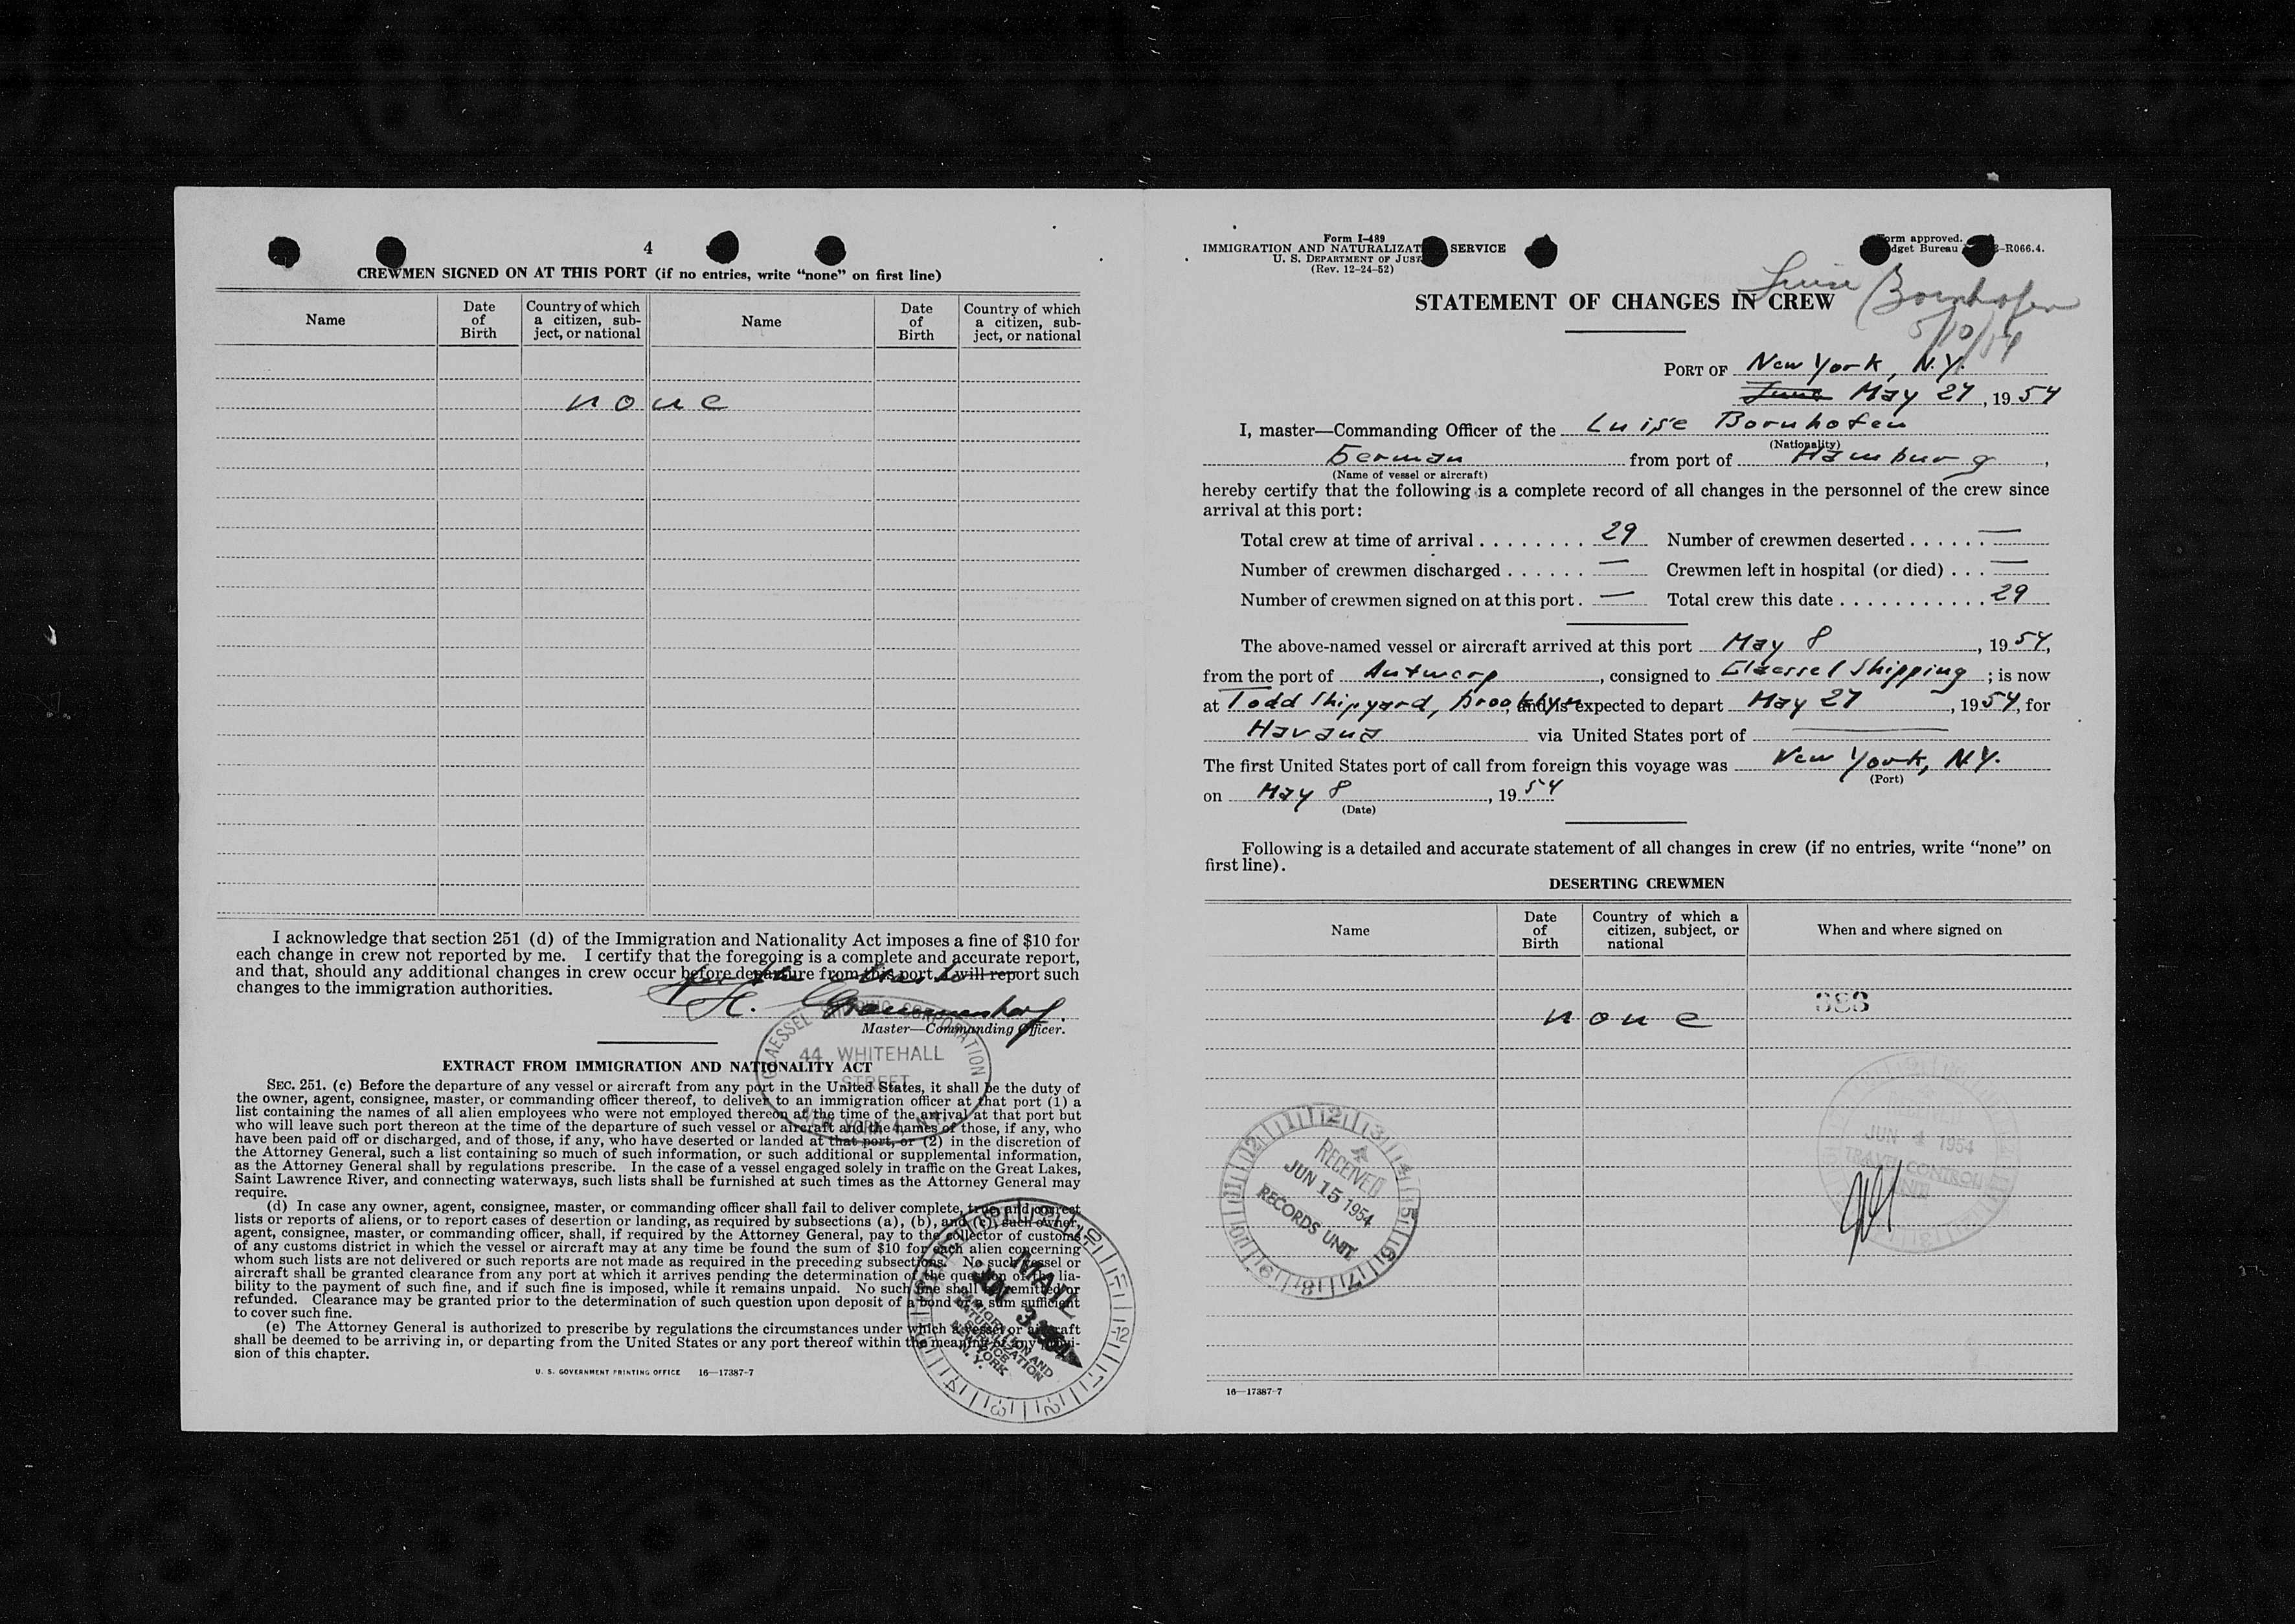 4
CREWMEN SIGNED ON AT THIS PORT (if no entries, write “none” on first line)
Name
Date of Birth
Country of which a citizen, sub-ject, or national
Name
Date of Birth
Country of which a citizen, sub-ject, or national
none
I acknowledge that section 251 (d) of the Immigration and Nationality Act imposes a fine of $10 for
each change in crew not reported by me. I certify that the foregoing is a complete and accurate report,
and that, should any additional changes in crew occur before departure from this port, I will report such
changes to the immigration authorities.
for the
H.
Master—Commanding Officer.
CLAESSEL SHIPPING CORPORATION
44 WHITEHALL
STREET
NEW YORK 4, N.Y.
EXTRACT FROM IMMIGRATION AND NATIONALITY ACT
SEC. 251. (c) Before the departure of any vessel or aircraft from any port in the United States, it shall be the duty of
the owner, agent, consignee, master, or commanding officer thereof, to deliver to an immigration officer at that port (1) a
list containing the names of all alien employees who were not employed thereon at the time of the arrival at that port but
who will leave such port thereon at the time of the departure of such vessel or aircraft and the names of those, if any, who
have been paid off or discharged, and of those, if any, who have deserted or landed at that port, or (2) in the discretion of
the Attorney General, such a list containing so much of such information, or such additional or supplemental information,
as the Attorney General shall by regulations prescribe. In the case of a vessel engaged solely in traffic on the Great Lakes,
Saint Lawrence River, and connecting waterways, such lists shall be furnished at such times as the Attorney General may
require.
(d) In case any owner, agent, consignee, master, or commanding officer shall fail to deliver complete, true, and correct
lists or reports of aliens, or to report cases of desertion or landing, as required by subsections (a), (b), and (c), such owner,
agent, consignee, master, or commanding officer, shall, if required by the Attorney General, pay to the collector of customs
of any customs district in which the vessel or aircraft may at any time be found the sum of $10 for each alien concerning
whom such lists are not delivered or such reports are not made as required in the preceding subsections. No such vessel or
aircraft shall be granted clearance from any port at which it arrives pending the determination of the question of the lia-
bility to the payment of such fine, and if such fine is imposed, while it remains unpaid. No such fine shall be remitted or
refunded. Clearance may be granted prior to the determination of such question upon deposit of a bond or a sum sufficient
to cover such fine.
(e) The Attorney General is authorized to prescribe by regulations the circumstances under which a vessel or aircraft
shall be deemed to be arriving in, or departing from the United States or any port thereof within the meaning of any provi-
sion of this chapter.
MAIL
JUN 3 1954
IMMIGRATION AND
NATURALIZATION
SERVICE
NEW YORK
N. Y.
U. S. GOVERNMENT PRINTING OFFICE 16—17387-7
Form I-489
IMMIGRATION AND NATURALIZAT SERVICE
U. S. DEPARTMENT OF JUST
(Rev. 12-24-52)
orm approved.
dget Bureau -R066.4.
Luise Bornhofen
5/10/54
STATEMENT OF CHANGES IN CREW
PORT OF New York, N.Y.
June May 27, 1954
I, master—Commanding Officer of the Luise Bornhofen
(Nationality)
German from port of Hamburg,
(Name of vessel or aircraft)
hereby certify that the following is a complete record of all changes in the personnel of the crew since
arrival at this port:
Total crew at time of arrival . . . . . . . . 29 Number of crewmen deserted . . . . . . —
Number of crewmen discharged . . . . . . — Crewmen left in hospital (or died) . . . —
Number of crewmen signed on at this port . — Total crew this date . . . . . . . . . . . 29
The above-named vessel or aircraft arrived at this port May 8, 1954,
from the port of Antwerp, consigned to Claessel Shipping; is now
at Todd Shipyard, Brooklyn, and is expected to depart May 27, 1954, for
Havana via United States port of —
The first United States port of call from foreign this voyage was New York, N.Y.
(Port)
on May 8, 1954
(Date)
Following is a detailed and accurate statement of all changes in crew (if no entries, write “none” on
first line).
DESERTING CREWMEN
Name
Date of Birth
Country of which a citizen, subject, or national
When and where signed on
383
none
RECEIVED
JUN 15 1954
RECORDS UNIT
RECEIVED
JUN 4 1954
TRAVEL CONTROL
UNIT
16—17387-7